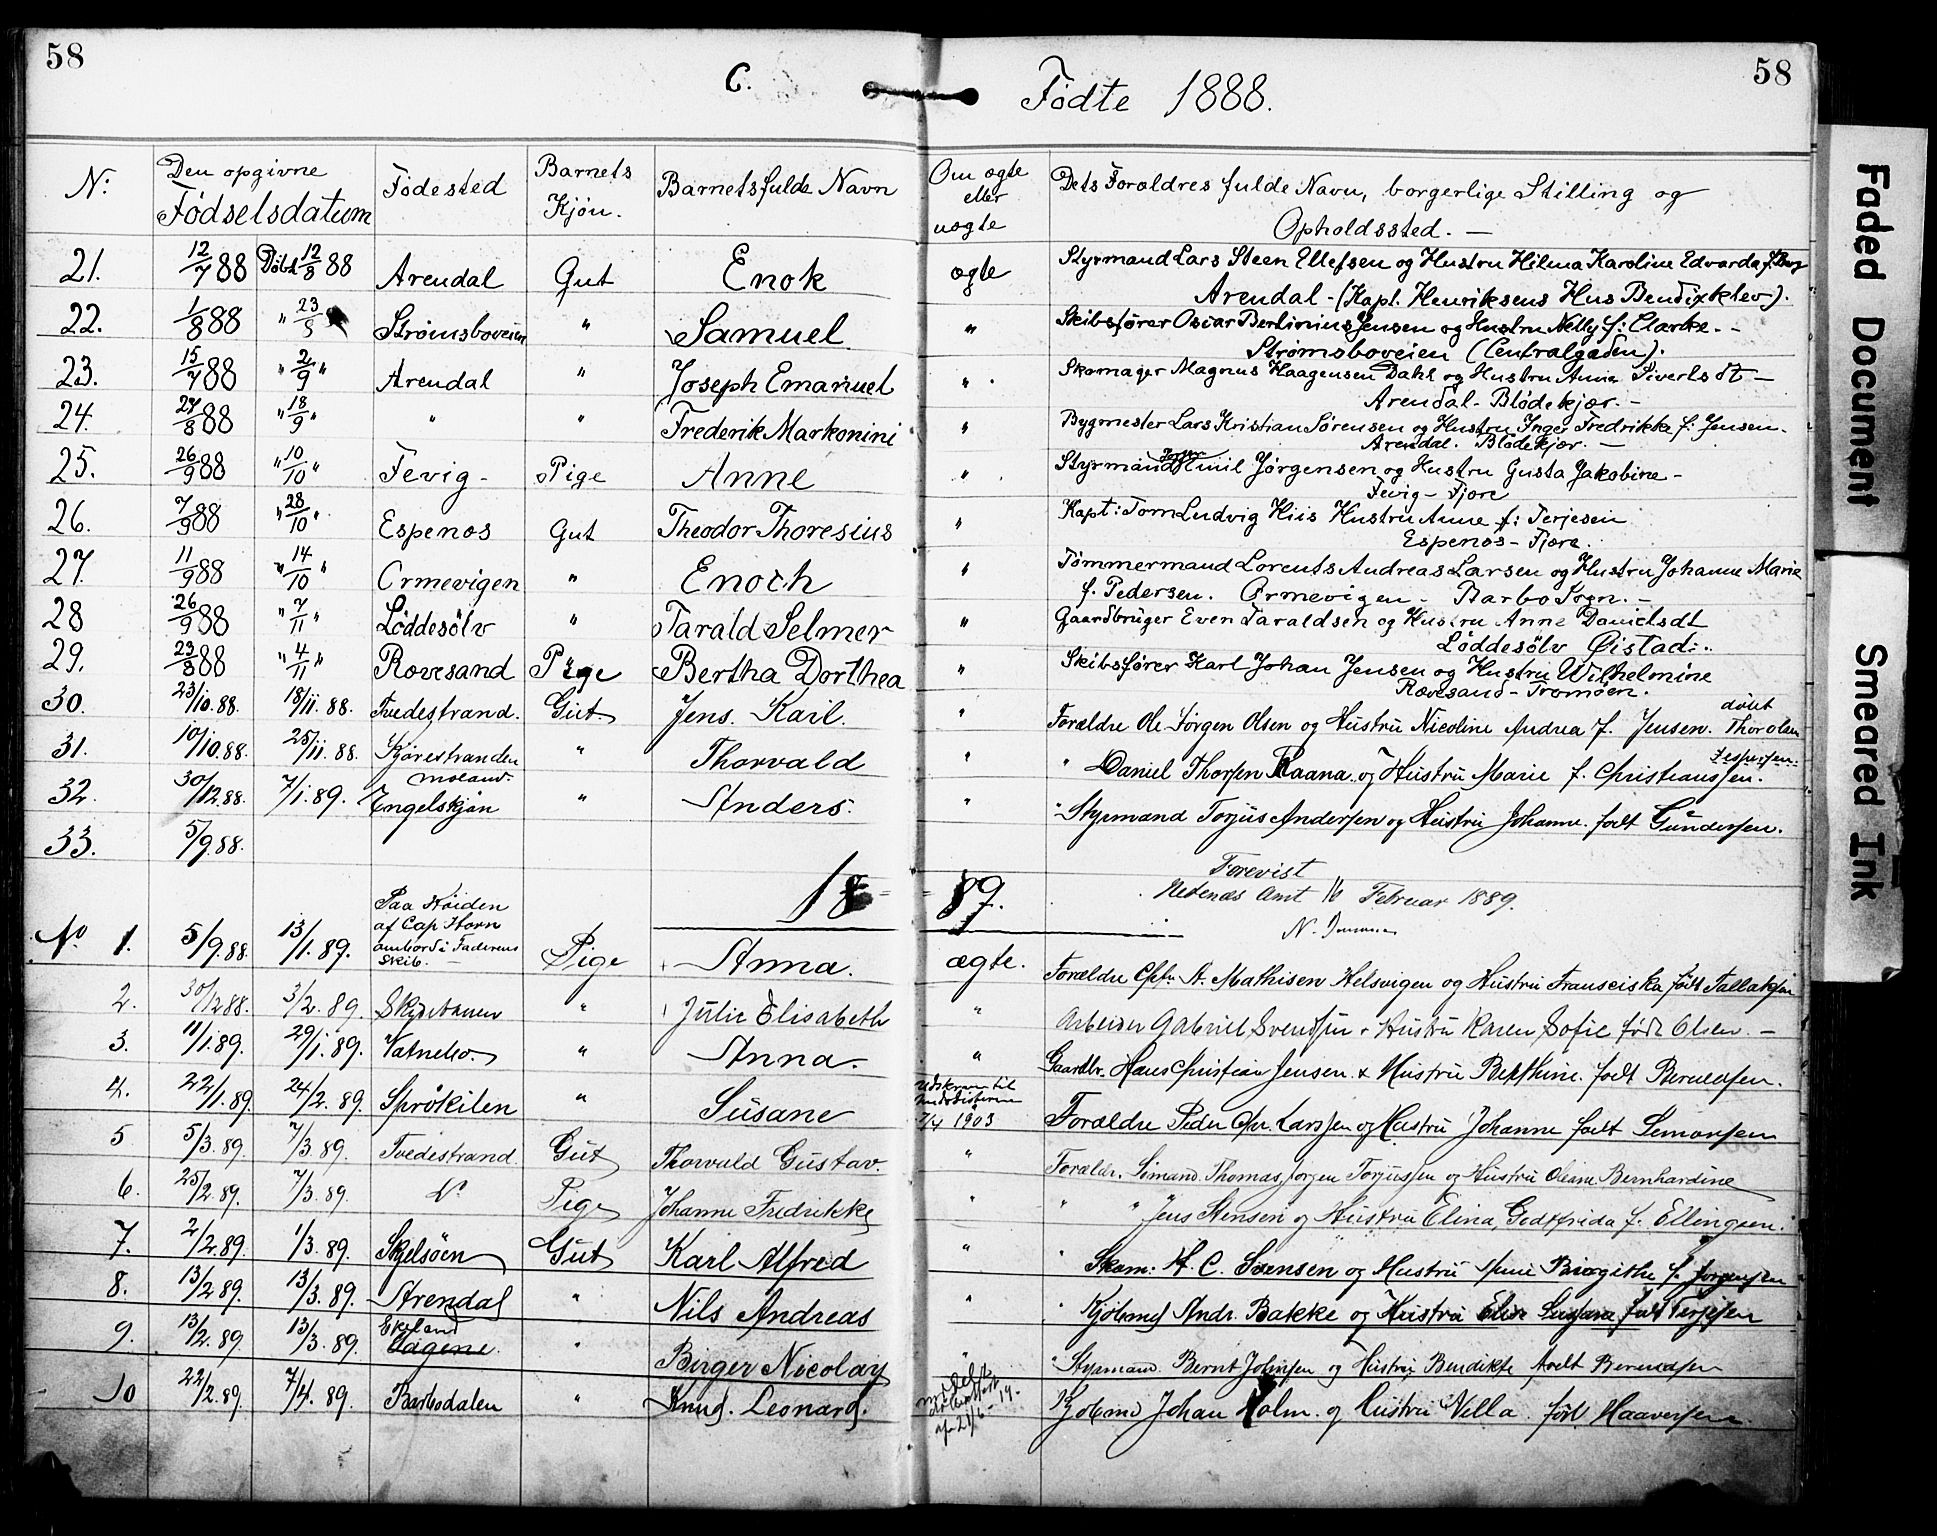 58
58
C. Fødte 1888.
N: Den opgivne Fødselsdatum Fødested Barnets Kjøn. Barnets fulde Navn Om ægte eller uægte Dets Forældres fulde Navn, borgerlige Stilling og Opholdssted. —
21. 12/7 88 Døbt 12/8 88 Arendal Gut Enok ægte Styrmand Lars Steen Ellefsen og Hustru Hilma Karoline Edvarda f. Berg
Arendal - (Kapt. Henriksens Hus Bendixklev).
22. 1/8 88 " 23/8 Strømsboveien " Samuel " Skibsfører Oscar Bertinius Jensen og Hustru Nelly f: Clarke. -
Strømsboveien (Centralgaden).
23. 15/7 88 " 2/9 " Arendal " Joseph Emanuel " Skomager Magnus Haagensen Dahl og Hustru Anna Sivertsdt —
Arendal - Blødekjær. -
24. 27/8 88 " 18/9 " " " Frederik Markonini " Bygmester Lars Kristian Sørensen og Hustru Inger Fredrikke f: Jensen.
Arendal. Blødekjær. —
25. 26/9 88 " 10/10 " Fevig - Pige Anne " Styrmand Emil Jørgensen og Hustru Gusta Jakobine -
Fevig - Fjære
26. 7/9 88 " 28/10 " Espenæs Gut Theodor Thoresius " Kapt: Tom Ludvig Hiis Hustru Anne f: Terjesen
Espenæs - Fjære.
27. 11/9 88 " 14/10 " Ormevigen " Enoch " Tømmermand Lorents Andreas Larsen og Hustru Johanne Marie
f. Pedersen. Ormevigen - Barbo Sogn. -
28 26/9 88 " 7/11 " Løddesølv " Tarald Selmer " Gaardbruger Even Taraldsen og Hustru Anne Danielsdt
Løddesølv Øistad:.
29. 23/8 88 " 4/11 " Rævesand Pige Bertha Dorthea " Skibsfører Karl Johan Jensen og Hustru Wilhelmine
Rævesand - Tromøen.
30. 23/10.88. 18/11.88. Tvedestrand. Gut. Jens. Karl. " Forældre Ole Jørgen Olsen og Hustru Nicoline Andrea f. Jensen.
31. 10/10.88. 25/11.88. Kjørestranden " Thorvald " " Daniel Thorsen Raana.. og Hustru Marie f. Christianssen.
32. 30/12.88. 7/1.89. Engelskjøn " Anders. " " Styrmand Torjus Andersen og Hustru Johanne. født Gundersen.
33. 5/9.88.
Forevist
Nedenæs Amt 16 Februar 1889.
18 = = 89.
No 1. 5/9.88. 13/1.89. Paa Høiden af Cap Horn ombord i Faderens Skib. — Pige Anna. ægte. Forældre Cpt: A. Mathisen Helsvigen og Hustru Franseiska født Tallaksen
2. 30/12.88. 3/2.89. " Julie Elisabeth " Arbeider Gabriel Svendsen & Hustru Karen Sofie født Olsen. —
3. 11/1.89. 29/1.89. " Anna. " Gaardbr. Hans Christian Jensen & Hustru Berthine. født Berntsen.
4. 22/1.89. 24/2.89. Sprøkilen " Susane 7/4 1903 Forældre Peder Chr. Larssen og Hustru Johanne født Simonsen
5 5/3.89. 7/3.89. Tvedestrand. Gut Thorvald Gustav. " Forældr. Sømand. Thomas Jørgen Torjussen og Hustru Oleane Bernhardine
6. 25/2.89. 7/3.89. Do Pige Johanne Fredrikke " " " Jens Stensen og Hustru Elina, Godtfrida f. Ellingsen.
7. 2/2.89. 1/3.89. Skjelsøen Gut Karl Alfred " " Skom: H. C. Svensen og Hustru Anne Birgithe f. Jørgensen
8. 13/2.89. 13/3.89. Arendal " Nils Andreas " " Kjøbmd Andr. Bakke og Hustru Elise Susane født Terjesen
9. 13/2.89. 13/3.89. Eyland " Birger Nicolay " " Styrmand. Bernt Johnsen og Hustru Bendikte født Berentsen
10 22/2.89. 7/4.89. Barbodalen " Knud. Leonard. 21/6-19. Kjøbmd Johan Holm. og Hustru Villa. født Haaversen.
Faded Document
Smeared Ink